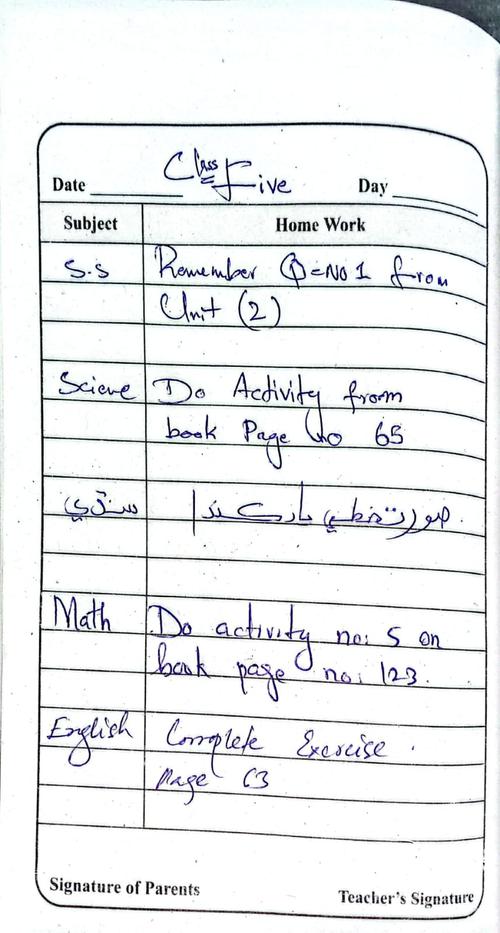 Class Five
Date Day
Subject Home Work
S.S Remember Q=No 1 from
Unit (2)
Sciene Do Activity from
book Page No 65
سنڌي صورتخطي
Math Do activity no: 5 on
book page no: 123.
English Complete Exercise.
Page 63
Signature of Parents Teacher's Signature